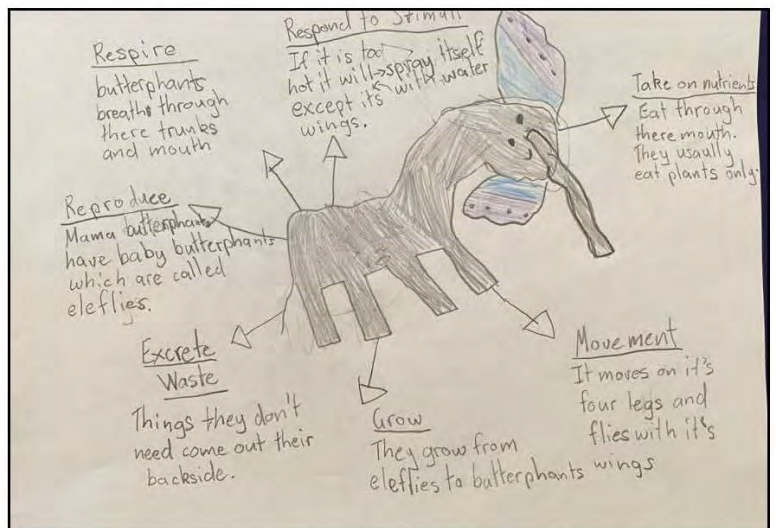 Respire
butterphants
breaths through
there trunks
and mouth
Respond to Stimuli
If it is too
hot it will spray itself
except its with water
wings.
Take on nutrients
Eat through
there mouth.
They usaully
eat plants only.
Reproduce
Mama butterphants
have baby butterphants
which are called
eleflies.
Excrete
Waste
Things they don't
need come out their
backside.
Grow
They grow from
eleflies to butterphants
Movement
It moves on it's
four legs and
flies with it's
wings